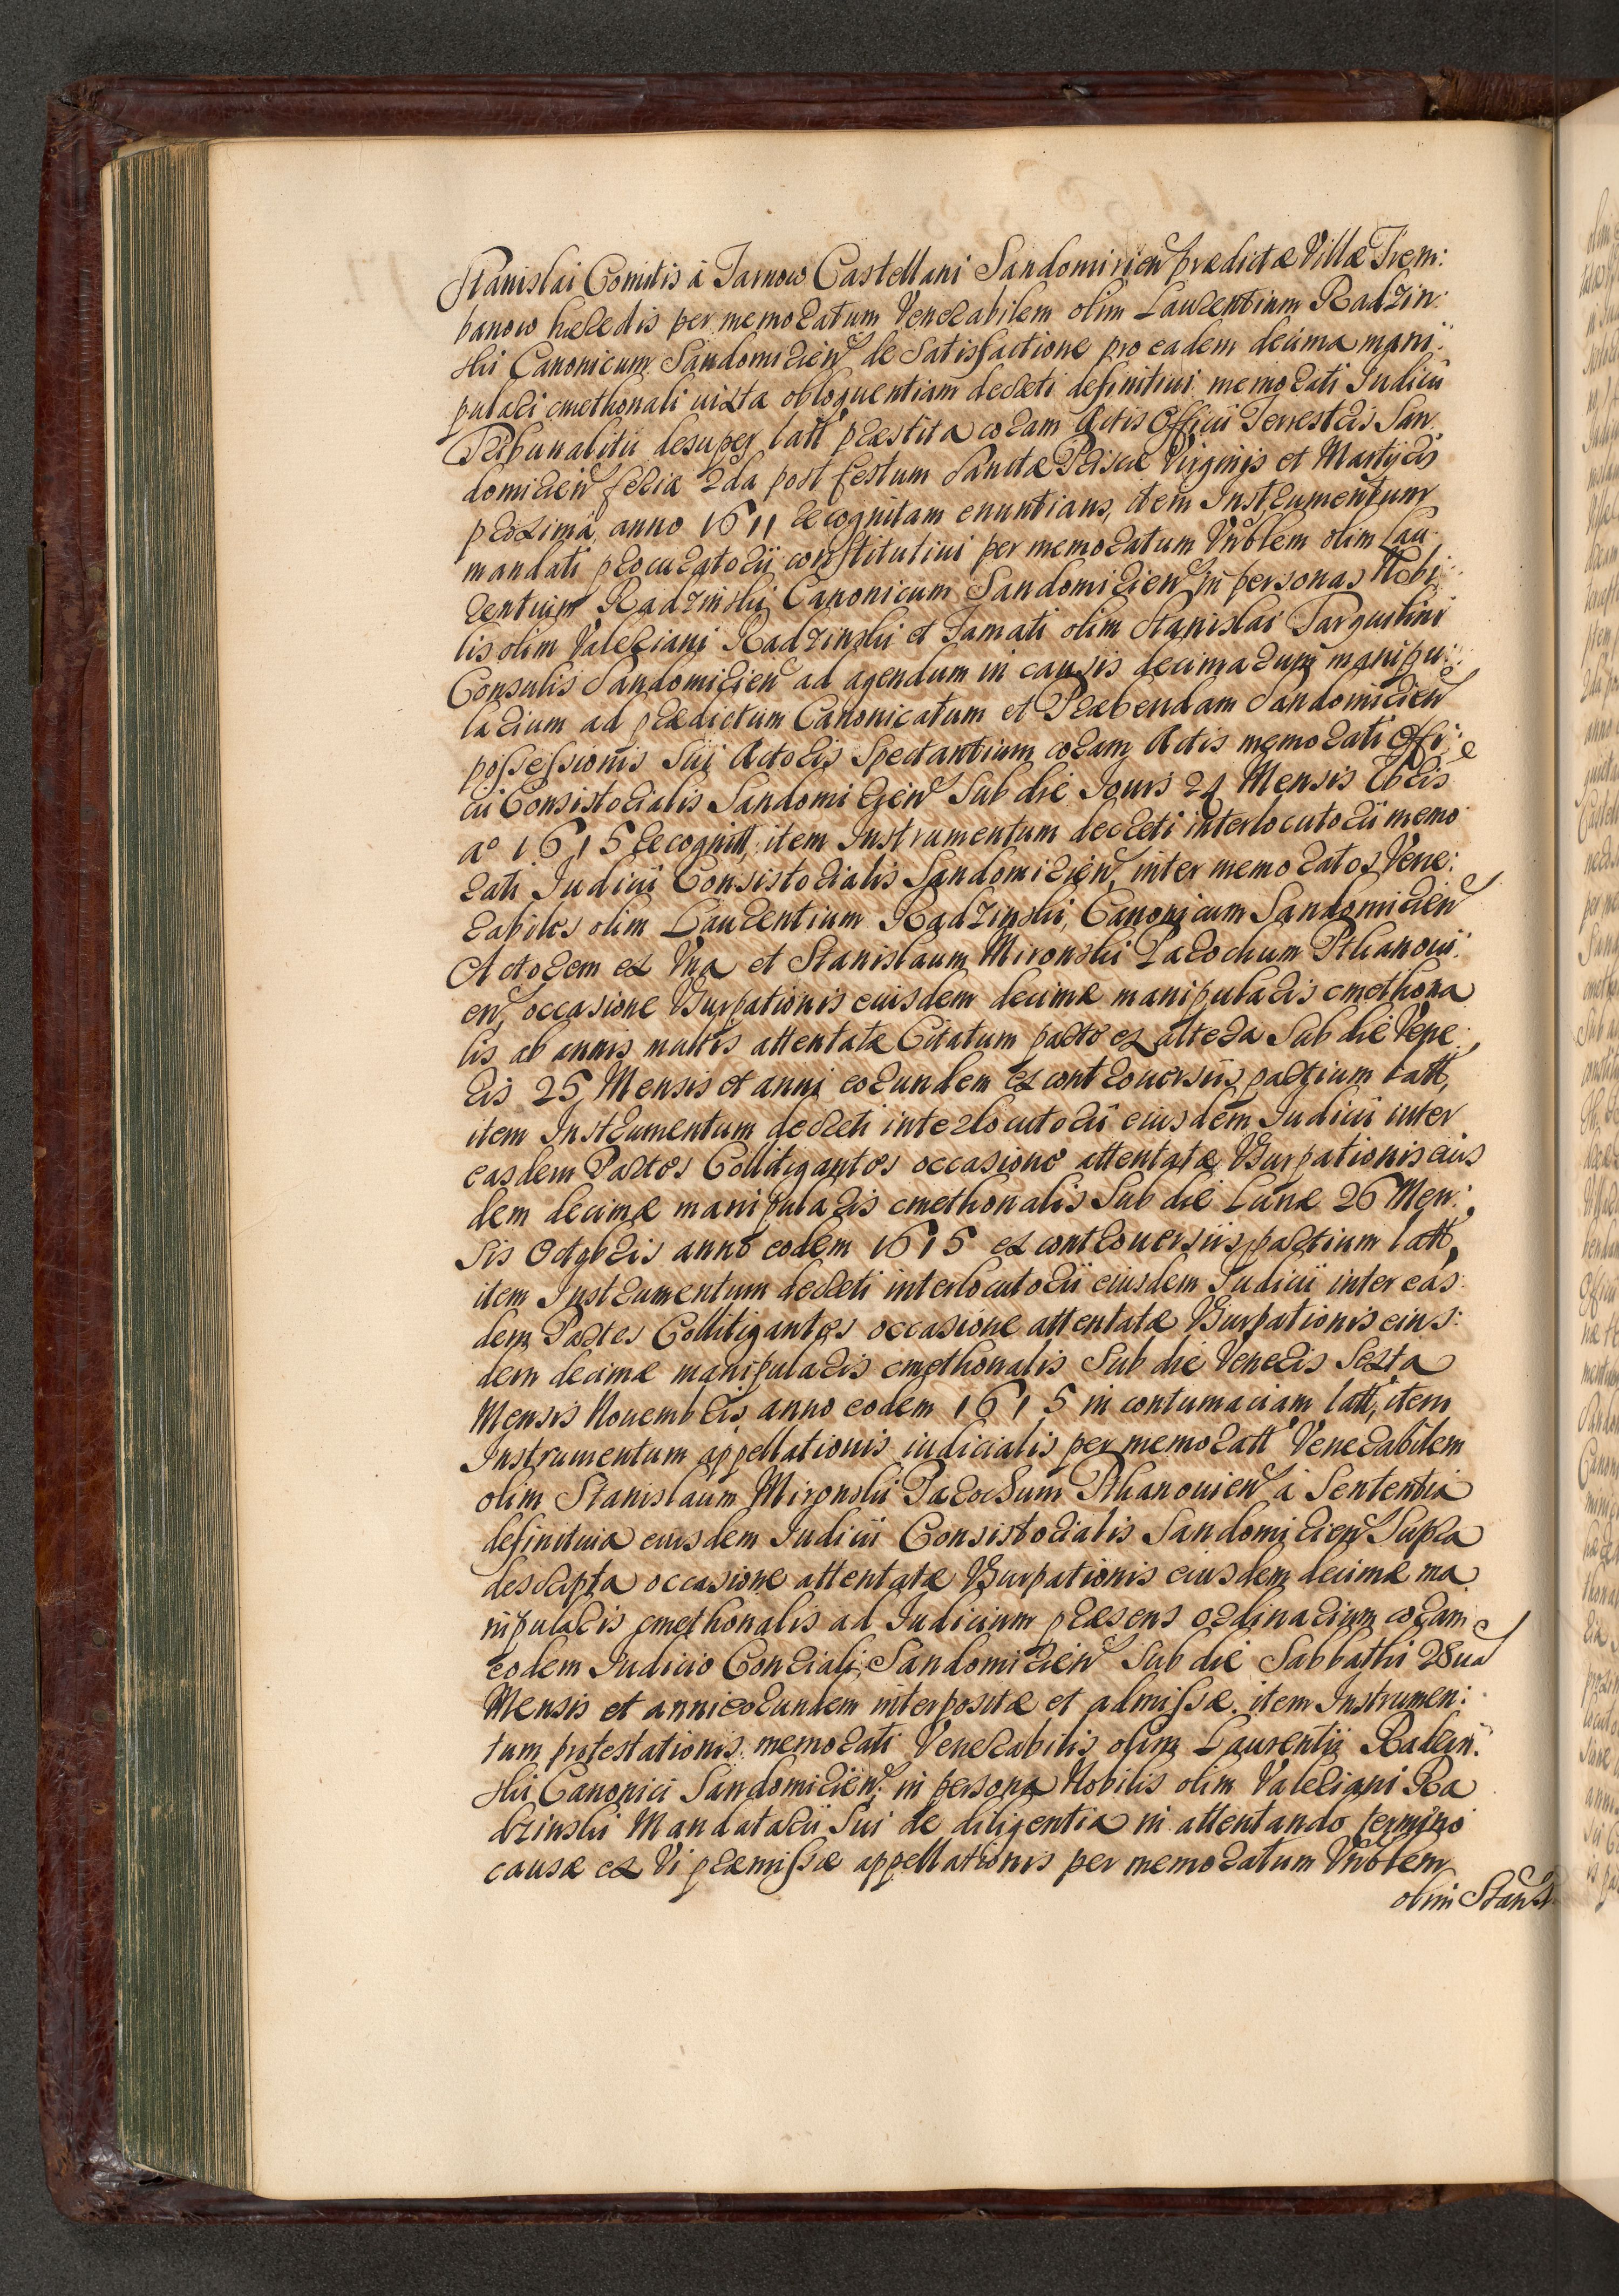 Stanislai Comitis à Tarnow Castellani Sandomirien prædictæ Villæ Trem:
banow hæredis per memoratum Venerabilem olim Laurentium Radzin:
ski Canonicum Sandomirien de Satisfactione pro eadem decima mani:
pulari cmethonali iuxta obloquentiam decreti definitiui memorati Iudicii
Tribunalitii desuper latt præstita coram Actis Officii Terrestris San:
domirien feria 2da post festum Sanctæ Priscæ Virginis et Martyris
proxima anno 1611 recognitam enuntians, item Instrumentum
mandati procuratorij constitutiui per memoratum Vnblem olim Lau:
rentium Radzinski Canonicum Sandomirien in personas Nobi:
lis olim Valeriani Radzinski et Famati olim Stanislai Targustini
Consulis Sandomirien ad agendum in causis decimarum manipu:
larium ad prædictum Canonicatum et Præbendam Sandomirien
possessionis sui Actoris Spectantium coram Actis memorati Offi:
cii Consistorialis Sandomirien Sub die Iouis 24 Mensis 8bris
ao 1615 recognitt, item Instrumentum decreti interlocutorii memo
rati Iudicii Consistorialis Sandomirien inter memoratos Vene:
rabiles olim Laurentium Radzinski, Canonicum Sandomirien
Actorem ex Vna et Stanislaum Mironski Parochum Pthanoui:
en occasione Vsurpationis eiusdem decimæ manipularis cmethona
lis ab annis multis attentatæ Citatum parte ex altera Sub die Vene:
ris 25 Mensis et anni eorundem ex controuersiis partium latt,
item Instrumentum decreti interlocutorii eiusdem Iudicii inter
easdem Partes Collitigantes occasione attentatæ Vsurpationis eius
dem decimæ manipularis cmethonalis Sub die Lunæ 26 Men:
sis Octobris anno eodem 1615 ex controuersiis partium latt,
item Instrumentum decreti interlocutorii eiusdem Iudicii inter eas:
dem Partes Collitigantes occasione attentatæ Vsurpationis eius:
dem decimæ manipularis cmethonalis Sub die Veneris Sexta
Mensis Nouembris anno eodem 1615 in contumaciam latt, item
Instrumentum appellationis iudicialis per memoratt Venerabilem
olim Stanislaum Mironski Parochum Pthanouien à Sententia
definitiua eiusdem Iudicii Consistorialis Sandomirien Supra
descripta occasione attentatæ Vsurpationis eiusdem decimæ ma
nipularis cmethonalis ad Iudicium præsens ordinarium coram
eodem Iudicio Conriali Sandomirien Sub die Sabbathi 28ua
Mensis et anni eorundem interpositæ et admissæ. item Instrumen:
tum protestationis memorati Venerabilis olim Laurentij Radzin:
ski Canonici Sandomirien: in persona Nobilis olim Valeriani Ra
dzinski Mandatarii Sui de diligentia in attentando termino
causæ ex Vi præmissæ appellationis per memoratum Vnblem
olim Stanis